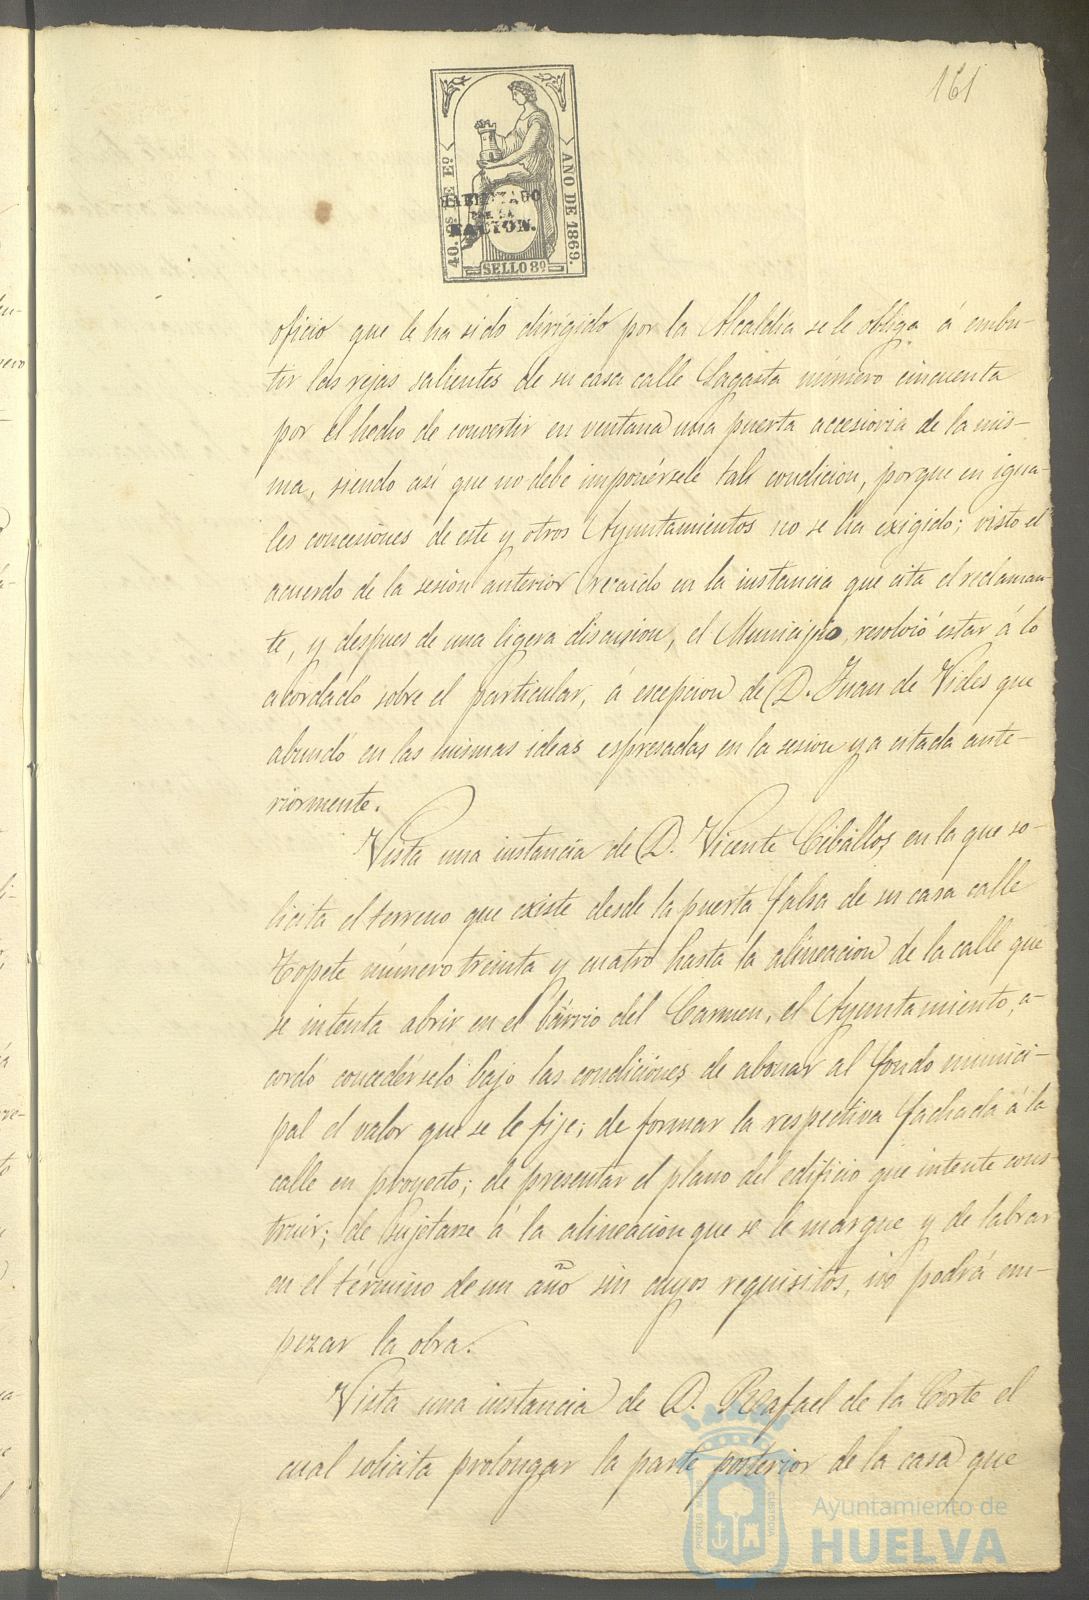 161
40. Cs. DE Eº.
AÑO DE 1869.
HABILITADO
POR LA
NACION.
SELLO 8º
oficio que le ha sido dirigido por la Alcaldía se le obliga á embu-
tir las rejas salientes de su casa calle Sagasta número cincuenta
por el hecho de convertir en ventana una puerta accesioria de la mis-
ma, siendo así que no debe imponérsele tal condicion, porque en igua-
les concesiones de este y otros Ayuntamientos no se ha exigido; visto el
acuerdo de la sesion anterior recaido en la instancia que cita el reclaman-
te, y despues de una ligera discusion, el Municipio, resolvió estar á lo
acordado sobre el particular, á escepcion de D. Juan de Vides que
abundó en las mismas ideas espresadas en la sesion ya citada ante-
riormente.
Vista una instancia de D. Vicente Ceballos en la que so-
licita el terreno que existe desde la puerta falsa de su casa calle
Topete número treinta y cuatro hasta la alineacion de la calle que
se intenta abrir en el barrio del Carmen, el Ayuntamiento, a-
cordó concedérselo bajo las condiciones de abonar al fondo munici-
pal el valor que se le fije; de formar la respectiva fachada á la
calle en proyecto; de presentar el plano del edificio que intente cons-
truir; de sujetarse á la alineacion que se le marque y de labrar
en el término de un año sin cuyos requisitos, no podrá em-
pezar la obra.
Vista una instancia de D. Rafael de la Corte el
cual solicita prolongar la parte posterior de la casa que
PORTUS MARIS
CUSTODIA
Ayuntamiento de
HUELVA